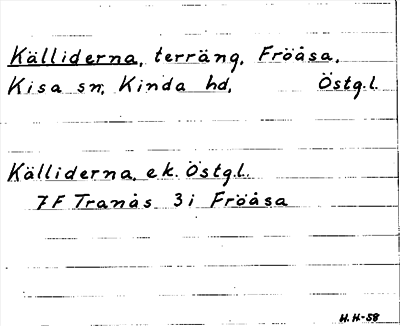 Källiderna, terräng, Fröåsa,
Kisa sn, Kinda hd, Östg.l.
Källiderna, ek. Östg.l.
7F Tranås 3i Fröåsa
H.H-58